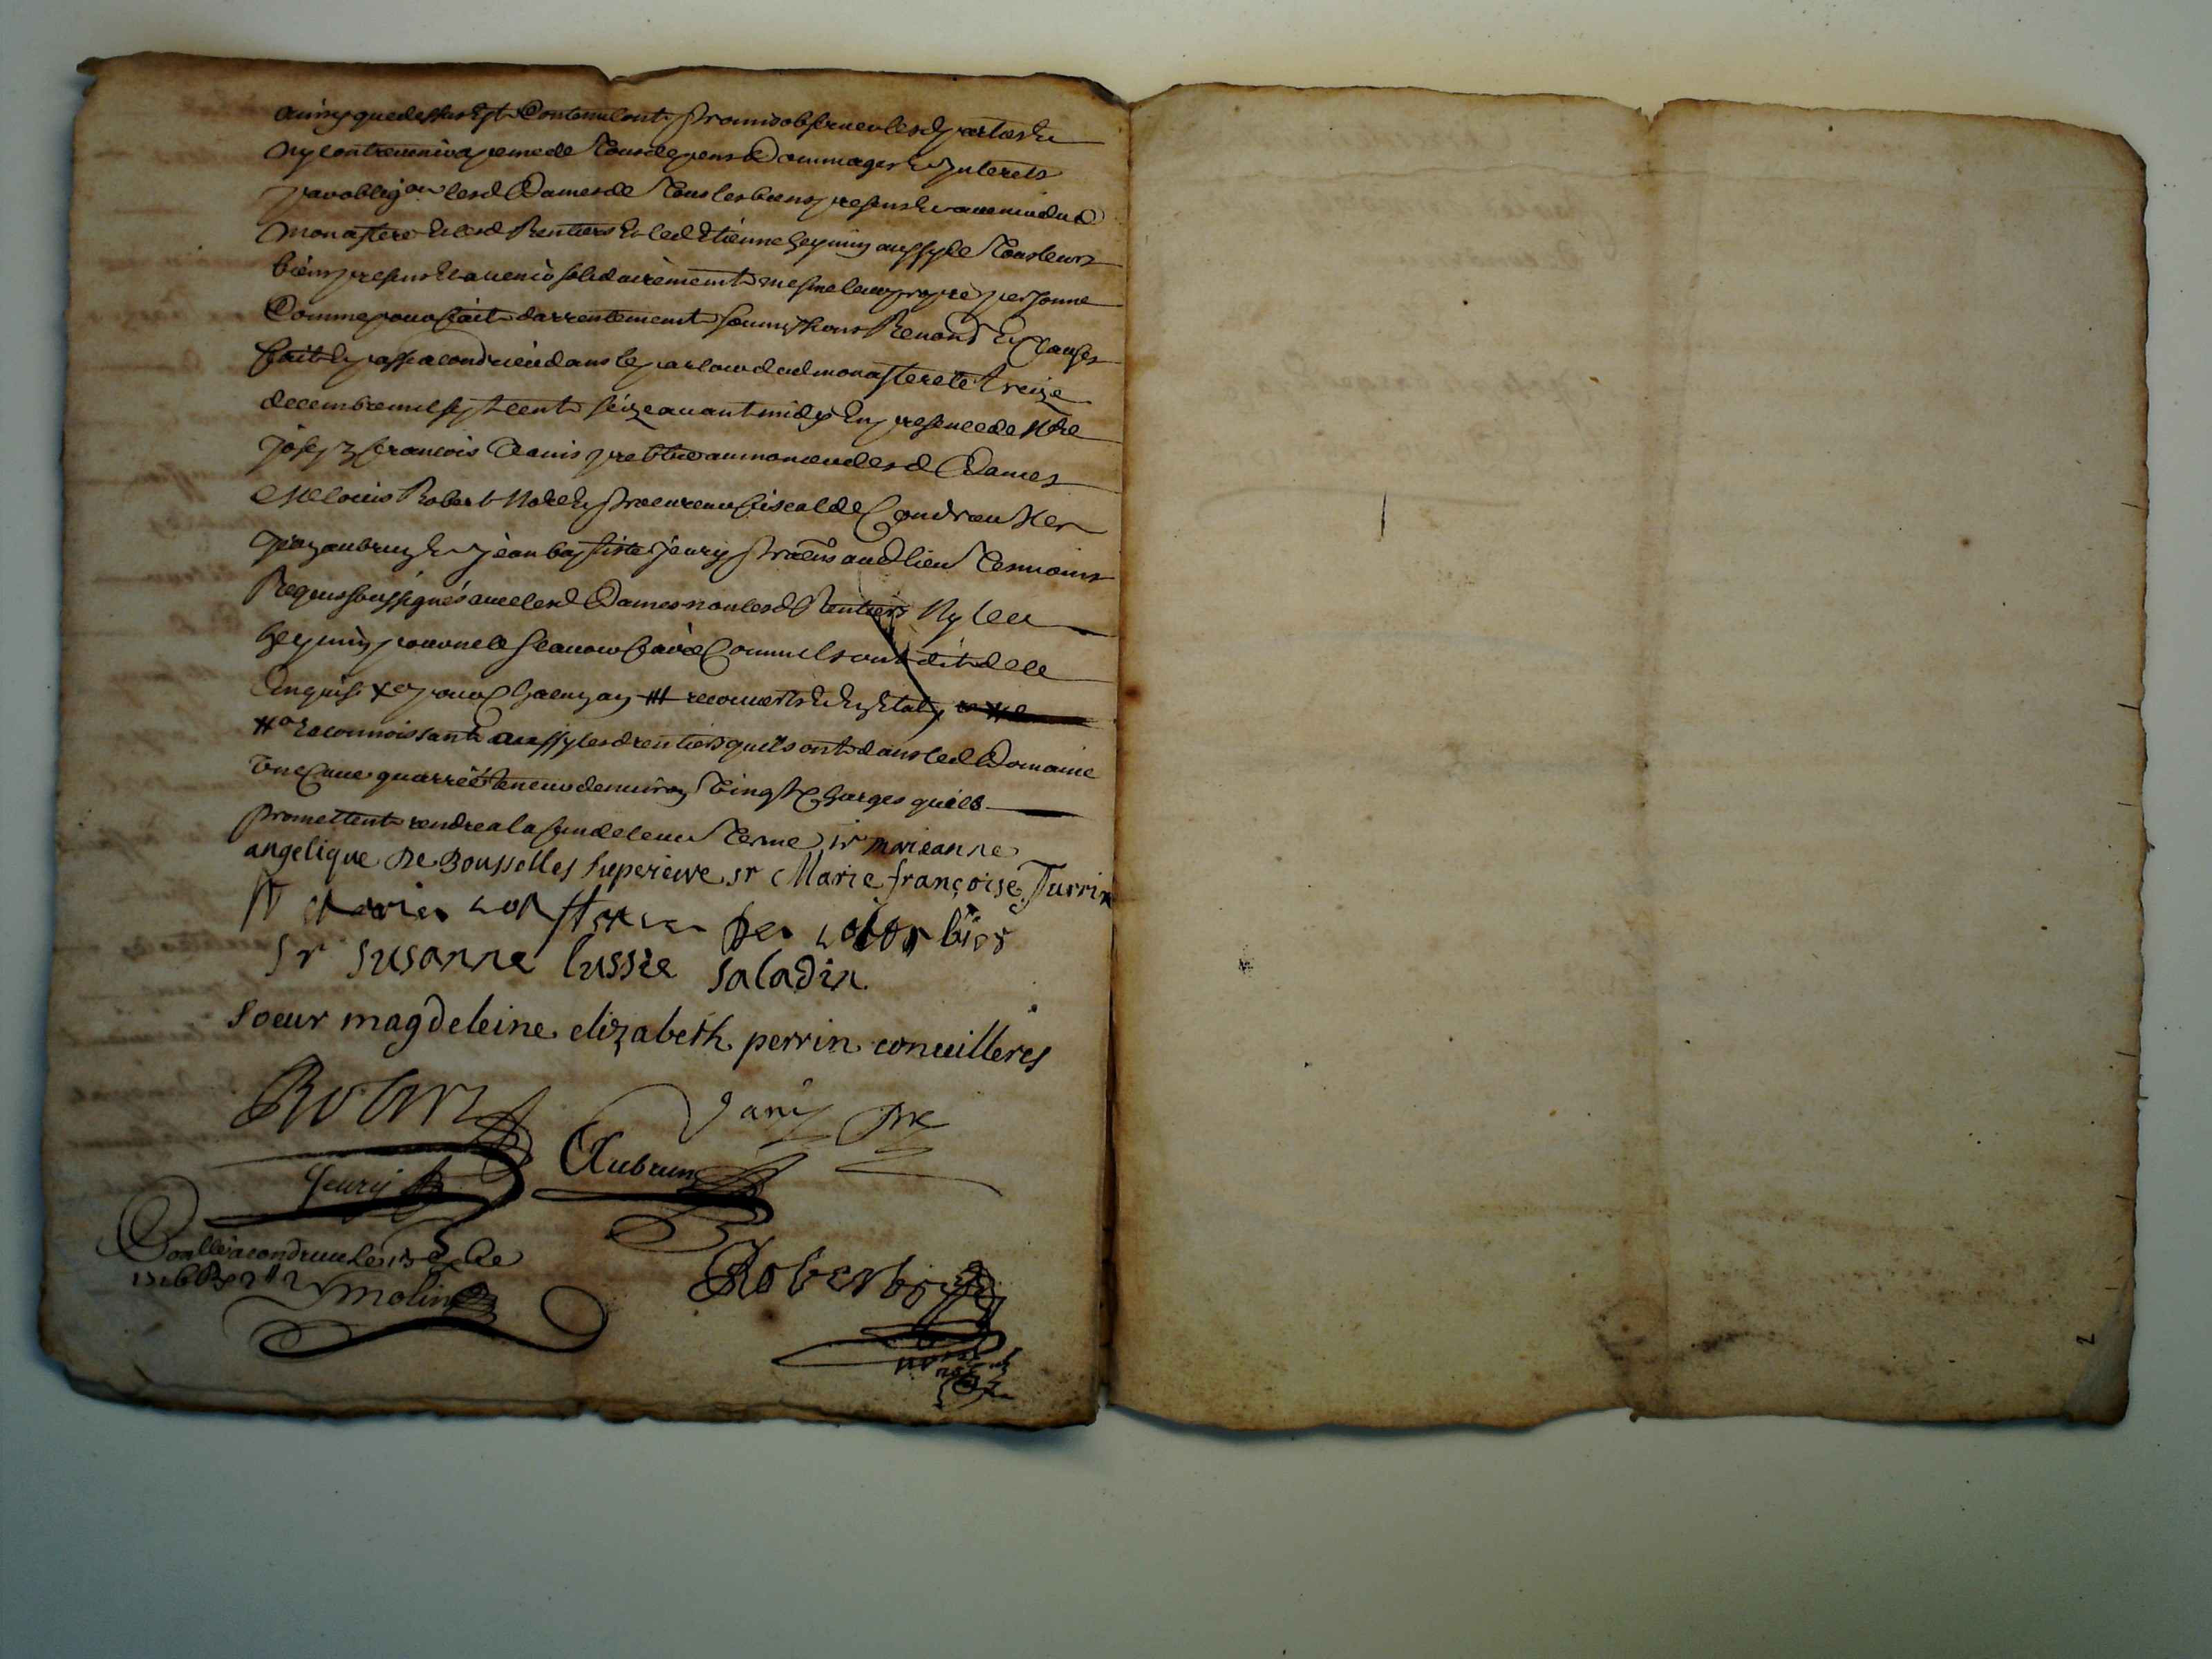 ainsy que dessus Est Contenu ont promis observer lesd partyes Et
ny contrevenir a peine de Tous depens Dommages Et Interets
par oblig.on lesd Dames de Tous les biens presens Et avenir dud
monastere Et lesd Rentiers Et led Etienne aussy de Tous leurs
biens presens Et avenir solidairement mesme leur propre personne
Comme pour fait darrentement soumissions Renon.s Et Clauses
fait Et passé a condrieu dans le parloir dud monastere le treize
decembre mil sept cent seize avant midy En presence de Mre
joseph francois Janis prebtre aumonier desd Dames
Me louis Robert No.re Et procureur fiscal de Condrieu
aubrun Et jean baptiste jeury aud lieu Temoins
Requis soussignés avec lesd Dames non lesd Rentiers Ny led
pour ne le scavoir faire Comme ils ont dit de ce
Enquis recouverts Et En Etat
reconnoissant aussy lesd rentiers quils ont dans led Domaine
une Cuve quarrée teneur denviron Vingt Charges quils
promettent rendre a la fin de leur Terme sr marieanne
angelique De Bousselles superieure sr Marie françoise Turrin
sr marie constance De colombier
sr susanne lussie saladin
soeur magdeleine elizabeth perrin conseilleres
Robert
Janis ptre
jeury
Aubrun
Conllé a condrieu le 13e Xbre
1716
molin
Robert